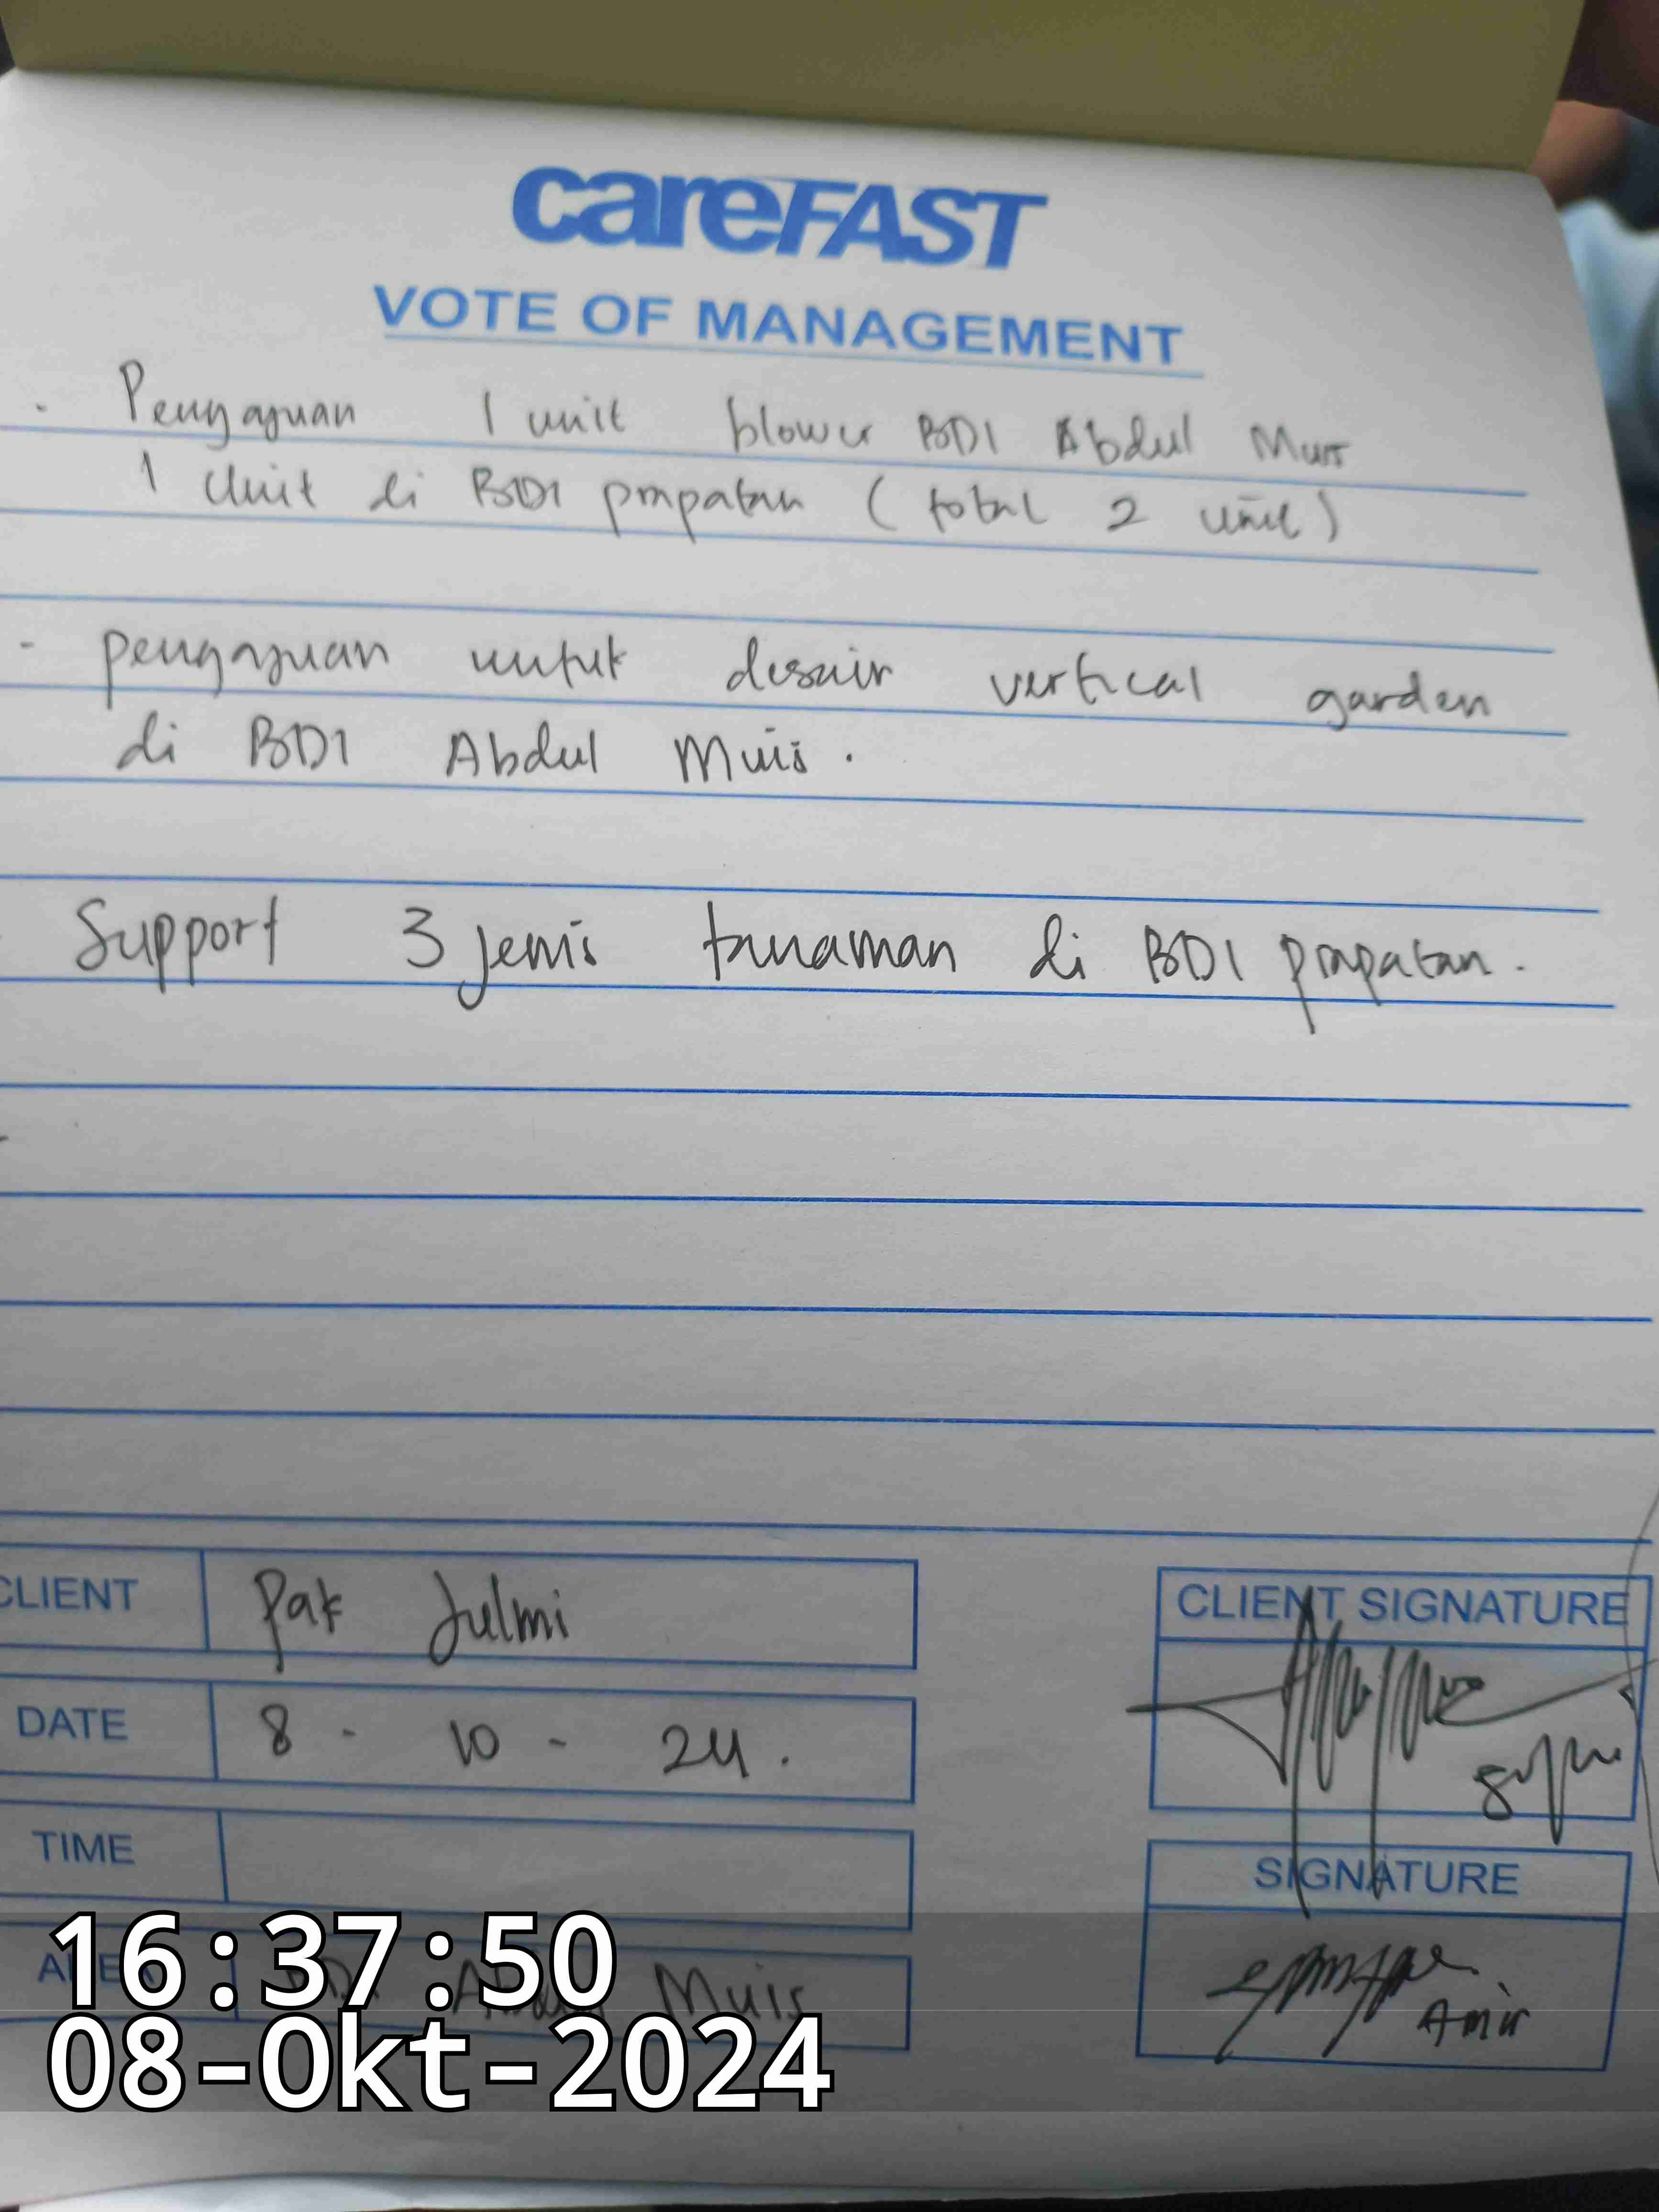 careFAST
VOTE OF MANAGEMENT
- Pengajuan 1 unit blower BDI Abdul Muis
1 Unit di BDI prapatan (total 2 unit)
- pengajuan untuk desain vertical garden
di BDI Abdul Muis.
Support 3 jenis tanaman di BDI prapatan.
CLIENT Pak Julmi
DATE 8 - 10 - 24.
TIME
AREA BDI Abdul Muis
CLIENT SIGNATURE
SIGNATURE
Amir
16:37:50
08-Okt-2024